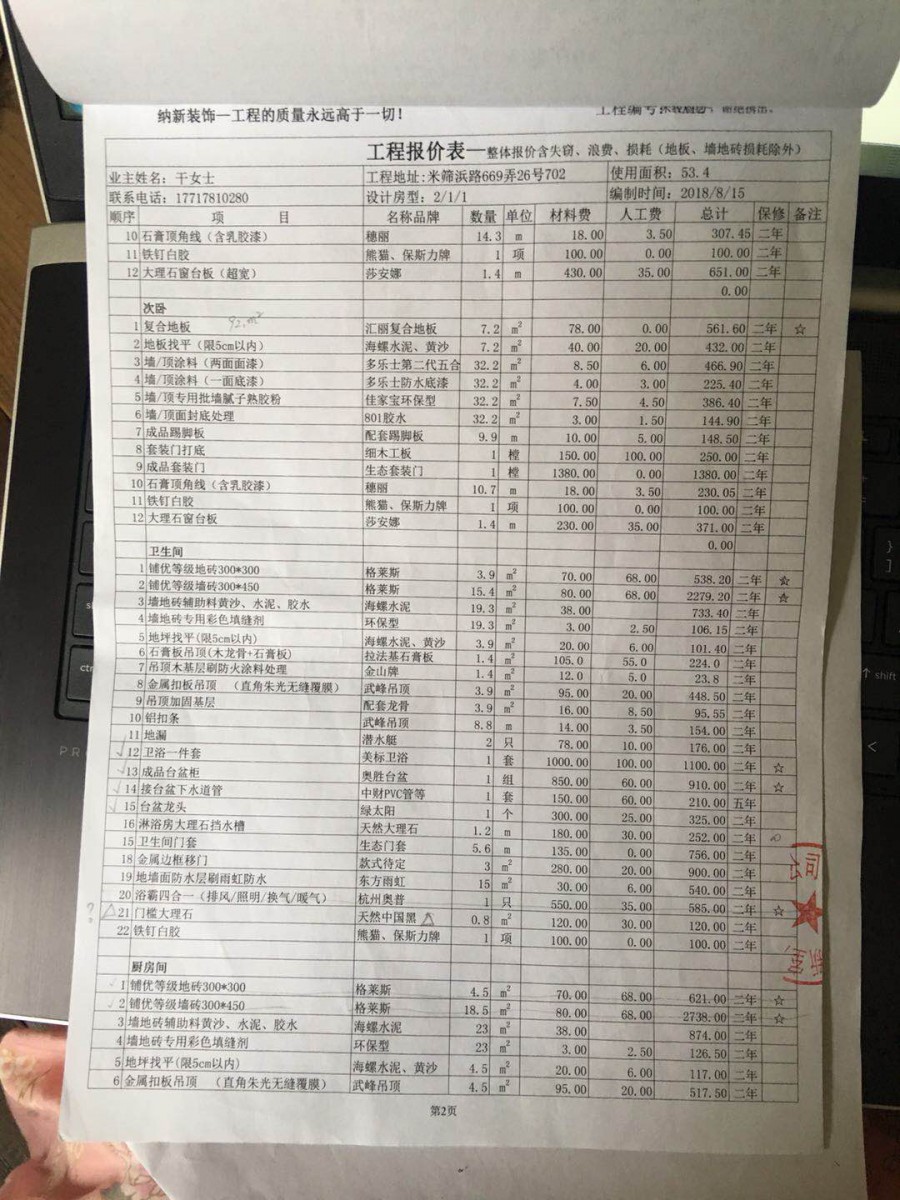 纳新装饰—工程的质量永远高于一切！ 工程编号：
工程报价表—整体报价含失窃、浪费、损耗（地板、墙地砖损耗除外）
业主姓名：干女士 工程地址:米筛浜路669弄26号702 使用面积：53.4
联系电话：17717810280 设计房型：2/1/1 编制时间：2018/8/15
顺序 项 目 名称品牌 数量 单位 材料费 人工费 总计 保修 备注
10 石膏顶角线（含乳胶漆） 穗丽 14.3 m 18.00 3.50 307.45 二年
11 铁钉白胶 熊猫、保斯力牌 1 项 100.00 0.00 100.00 二年
12 大理石窗台板（超宽） 莎安娜 1.4 m 430.00 35.00 651.00 二年
0.00
次卧
1 复合地板 汇丽复合地板 7.2 m² 78.00 0.00 561.60 二年 ☆
2 地板找平（限5cm以内） 海螺水泥、黄沙 7.2 m² 40.00 20.00 432.00 二年
3 墙/顶涂料（两面面漆） 多乐士第二代五合 32.2 m² 8.50 6.00 466.90 二年
4 墙/顶涂料（一面底漆） 多乐士防水底漆 32.2 m² 4.00 3.00 225.40 二年
5 墙/顶专用批墙腻子熟胶粉 佳家宝环保型 32.2 m² 7.50 4.50 386.40 二年
6 墙/顶面封底处理 801胶水 32.2 m² 3.00 1.50 144.90 二年
7 成品踢脚板 配套踢脚板 9.9 m 10.00 5.00 148.50 二年
8 套装门打底 细木工板 1 樘 150.00 100.00 250.00 二年
9 成品套装门 生态套装门 1 樘 1380.00 0.00 1380.00 二年
10 石膏顶角线（含乳胶漆） 穗丽 10.7 m 18.00 3.50 230.05 二年
11 铁钉白胶 熊猫、保斯力牌 1 项 100.00 0.00 100.00 二年
12 大理石窗台板 莎安娜 1.4 m 230.00 35.00 371.00 二年
0.00
卫生间
1 铺优等级地砖300*300 格莱斯 3.9 m² 70.00 68.00 538.20 二年 ☆
2 铺优等级墙砖300*450 格莱斯 15.4 m² 80.00 68.00 2279.20 二年 ☆
3 墙地砖辅助料黄沙、水泥、胶水 海螺水泥 19.3 m² 38.00 733.40 二年
4 墙地砖专用彩色填缝剂 环保型 19.3 m² 3.00 2.50 106.15 二年
5 地坪找平(限5cm以内) 海螺水泥、黄沙 3.9 m² 20.00 6.00 101.40 二年
6 石膏板吊顶(木龙骨+石膏板) 拉法基石膏板 1.4 m² 105.0 55.0 224.0 二年
7 吊顶木基层刷防火涂料处理 金山牌 1.4 m² 12.0 5.0 23.8 二年
8 金属扣板吊顶 （直角朱光无缝覆膜） 武峰吊顶 3.9 m² 95.00 20.00 448.50 二年
9 吊顶加固基层 配套龙骨 3.9 m² 16.00 8.50 95.55 二年
10 铝扣条 武峰吊顶 8.8 m 14.00 3.50 154.00 二年
11 地漏 潜水艇 2 只 78.00 10.00 176.00 二年
12 卫浴一件套 美标卫浴 1 套 1000.00 100.00 1100.00 二年 ☆
13 成品台盆柜 奥胜台盆 1 组 850.00 60.00 910.00 二年 ☆
14 接台盆下水道管 中财PVC管等 1 套 150.00 60.00 210.00 五年
15 台盆龙头 绿太阳 1 个 300.00 25.00 325.00 二年
16 淋浴房大理石挡水槽 天然大理石 1.2 m 180.00 30.00 252.00 二年
15 卫生间门套 生态门套 5.6 m 135.00 0.00 756.00 二年
18 金属边框移门 款式待定 3 m² 280.00 20.00 900.00 二年
19 地墙面防水层刷雨虹防水 东方雨虹 15 m² 30.00 6.00 540.00 二年
20 浴霸四合一（排风/照明/换气/暖气） 杭州奥普 1 只 550.00 35.00 585.00 二年 ☆
? △ 21 门槛大理石 天然中国黑 △ 0.8 m² 120.00 30.00 120.00 二年
22 铁钉白胶 熊猫、保斯力牌 1 项 100.00 0.00 100.00 二年
厨房间
1 铺优等级地砖300*300 格莱斯 4.5 m² 70.00 68.00 621.00 二年 ☆
2 铺优等级墙砖300*450 格莱斯 18.5 m² 80.00 68.00 2738.00 二年 ☆
3 墙地砖辅助料黄沙、水泥、胶水 海螺水泥 23 m² 38.00 874.00 二年
4 墙地砖专用彩色填缝剂 环保型 23 m² 3.00 2.50 126.50 二年
5 地坪找平(限5cm以内) 海螺水泥、黄沙 4.5 m² 20.00 6.00 117.00 二年
6 金属扣板吊顶 （直角朱光无缝覆膜） 武峰吊顶 4.5 m² 95.00 20.00 517.50 二年
第2页